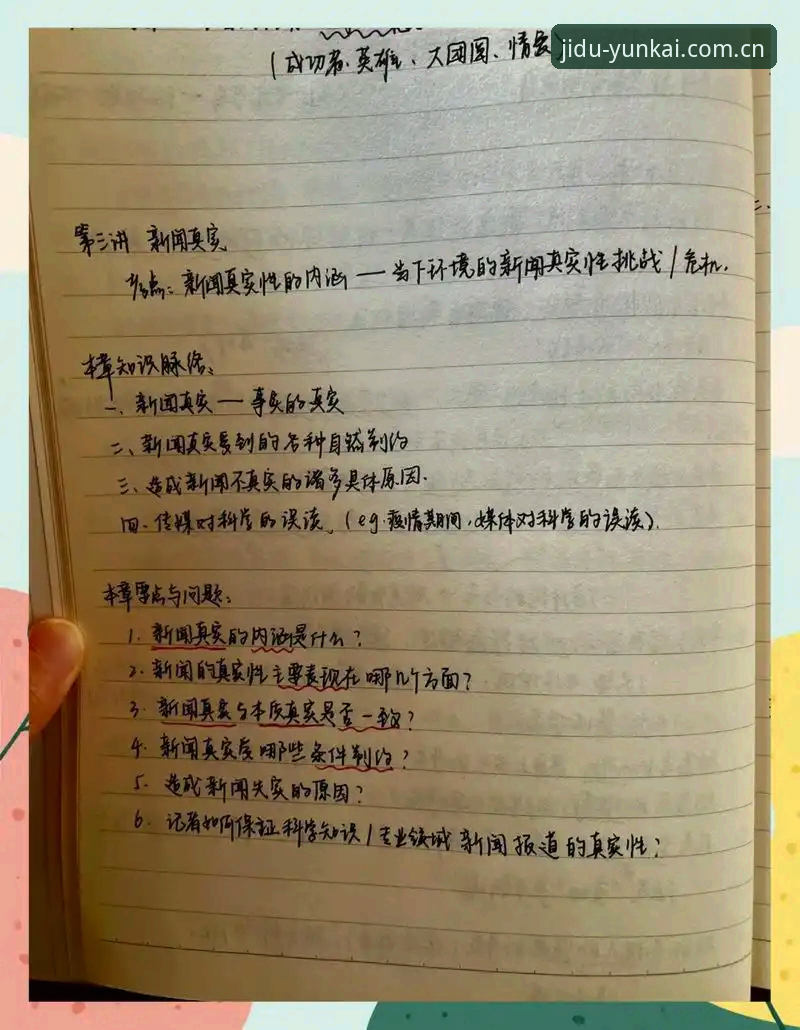 jidu-yunkai.com.cn
(成功者、英雄、大团圆、情爱
第三讲 新闻真实
考点：新闻真实性的内涵 — 当下环境的新闻真实性挑战/危机.
本章知识脉络：
一、新闻真实 — 事实的真实
二、新闻真实受到的各种自然制约
三、造成新闻不真实的诸多具体原因.
四、传媒对科学的误读。(eg.疫情期间,媒体对科学的误读).
本章要点与问题：
1. 新闻真实的内涵是什么?
2. 新闻的真实性主要表现在哪几个方面?
3. 新闻真实与本质真实是否一致?
4. 新闻真实受哪些条件制约?
5. 造成新闻失实的原因?
6. 记者如何保证科学知识/专业领域新闻报道的真实性?